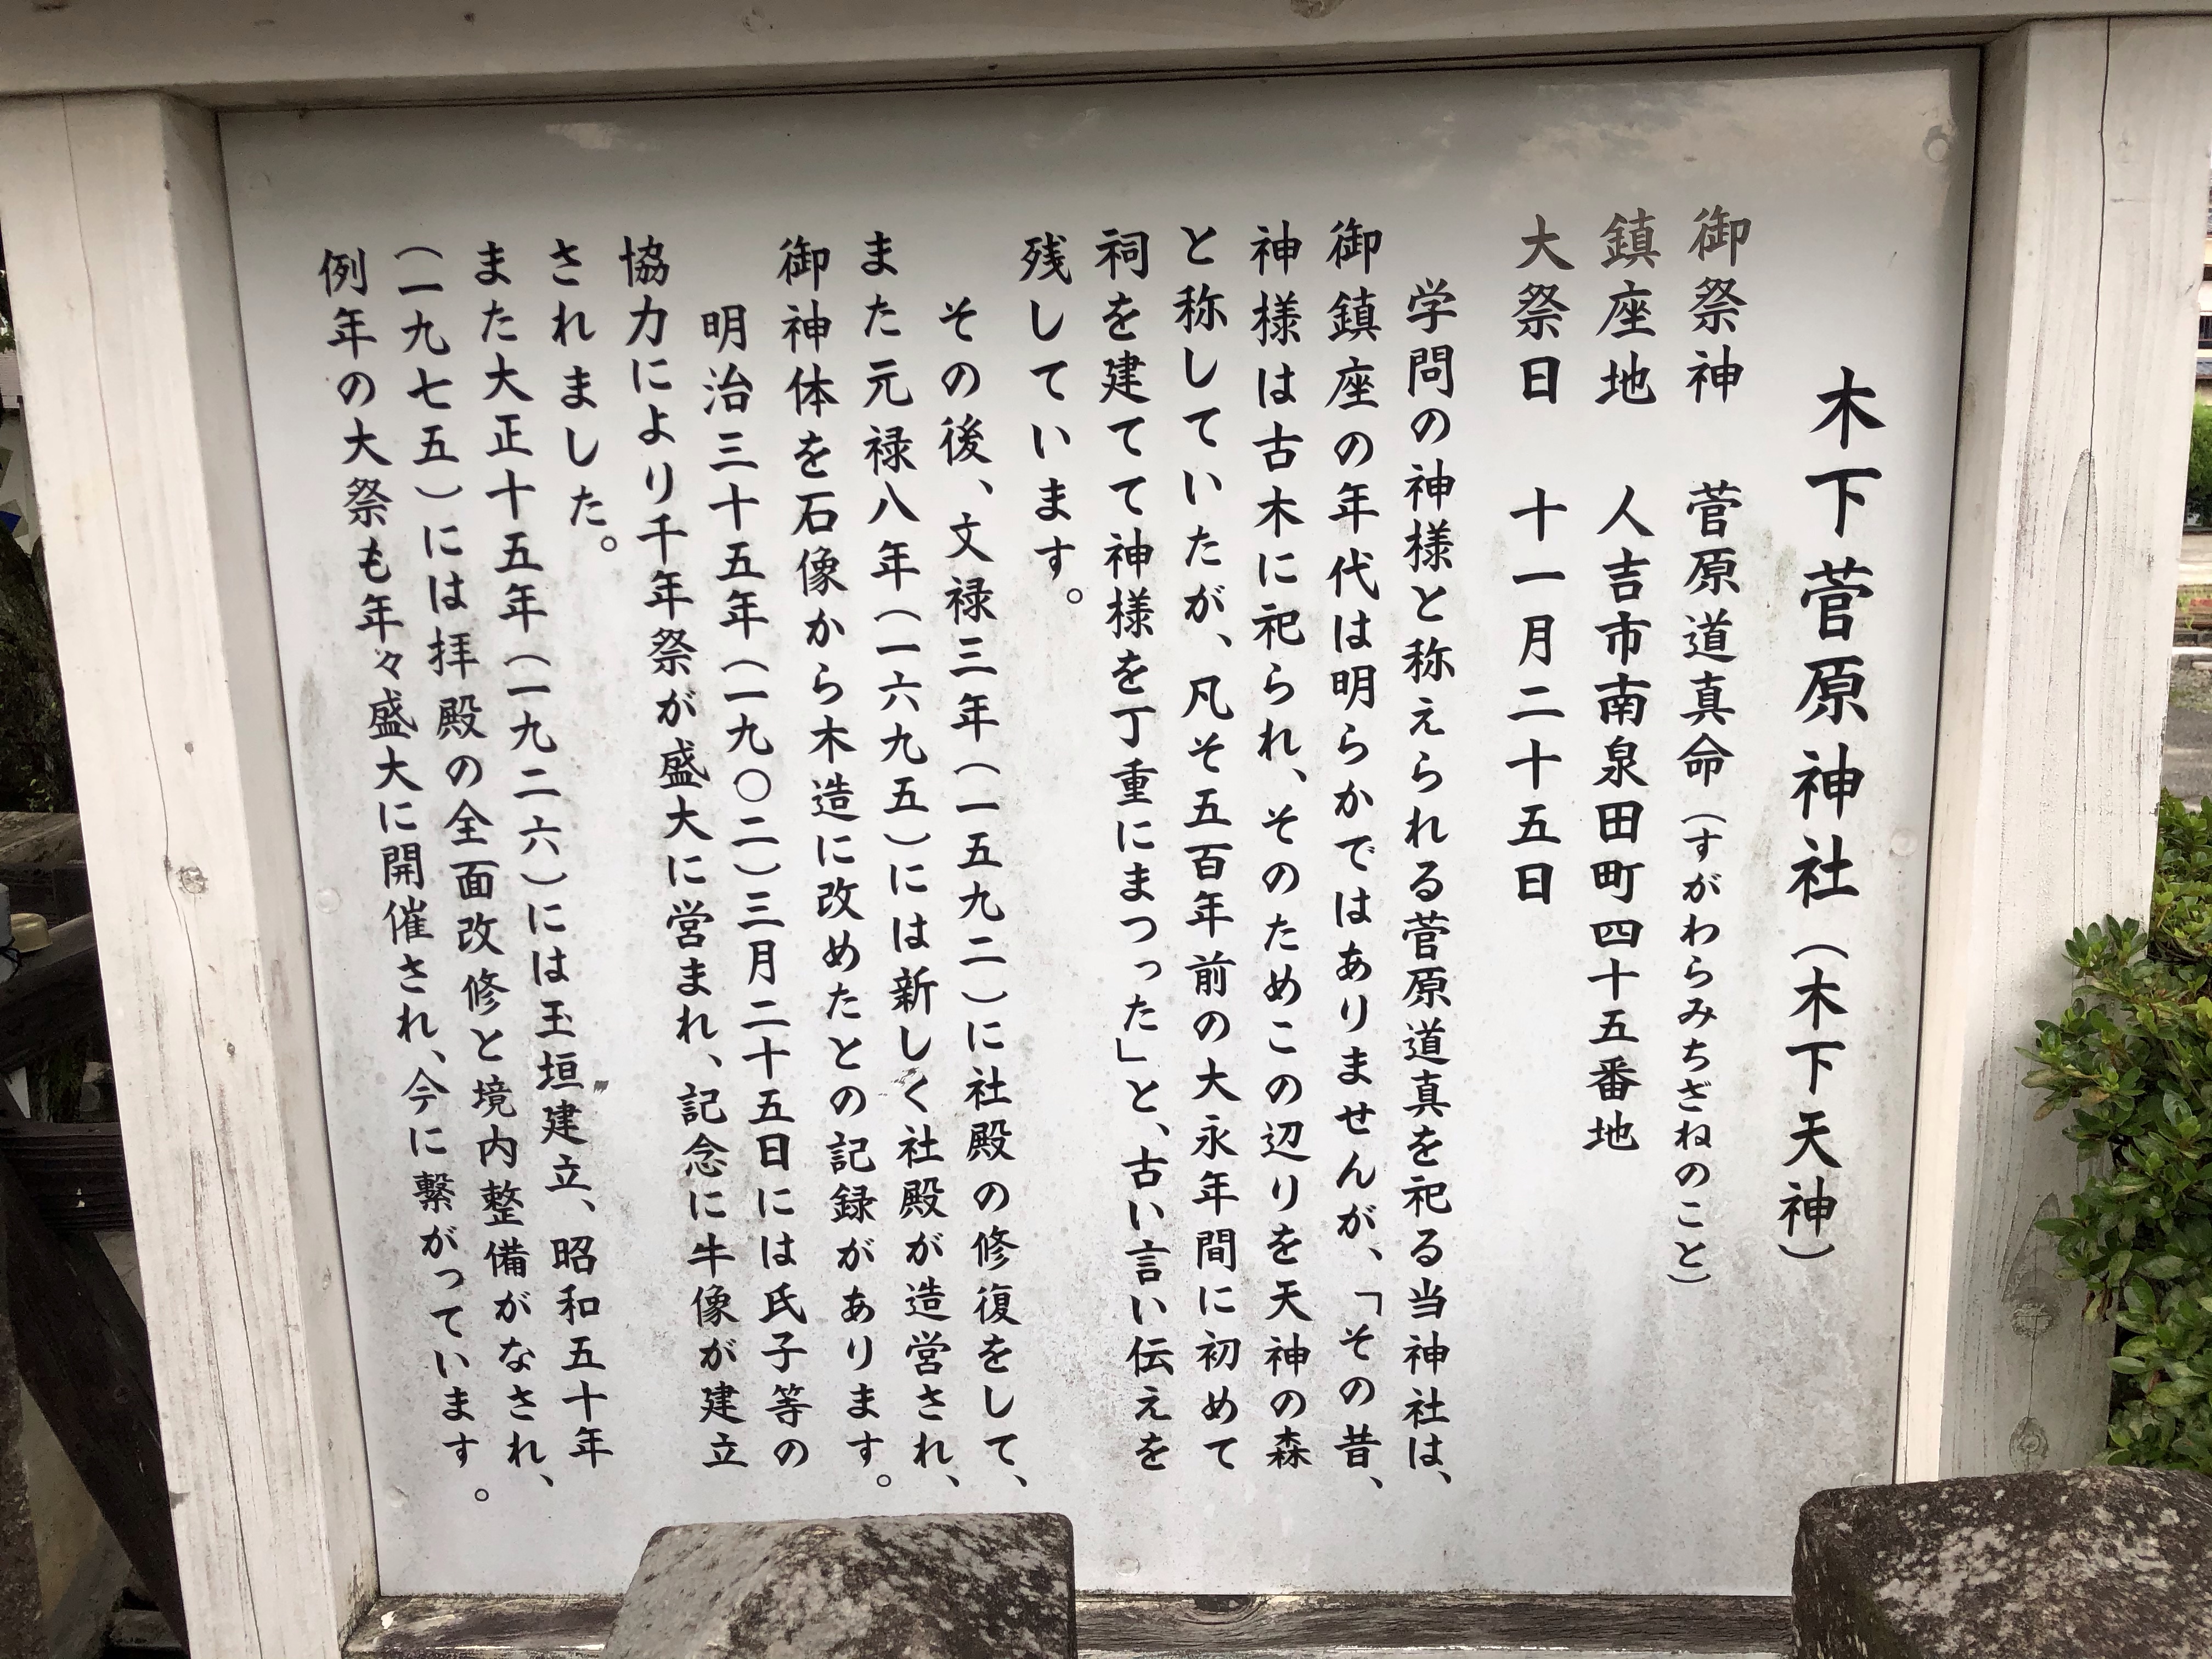 木下菅原神社（木下天神）
御祭神　菅原道真命（すがわらみちざねのこと）
鎮座地　人吉市南泉田町四十五番地
大祭日　十一月二十五日
学問の神様と称えられる菅原道真を祀る当神社は、
御鎮座の年代は明らかではありませんが、「その昔、
神様は古木に祀られ、そのためこの辺りを天神の森
と称していたが、凡そ五百年前の大永年間に初めて
祠を建てて神様を丁重にまつった」と、古い言い伝えを
残しています。
その後、文禄三年（一五九二）に社殿の修復をして、
また元禄八年（一六九五）には新しく社殿が造営され、
御神体を石像から木造に改めたとの記録があります。
明治三十五年（一九〇二）三月二十五日には氏子等の
協力により千年祭が盛大に営まれ、記念に牛像が建立
されました。
また大正十五年（一九二六）には玉垣建立、昭和五十年
（一九七五）には拝殿の全面改修と境内整備がなされ、
例年の大祭も年々盛大に開催され、今に繋がっています。